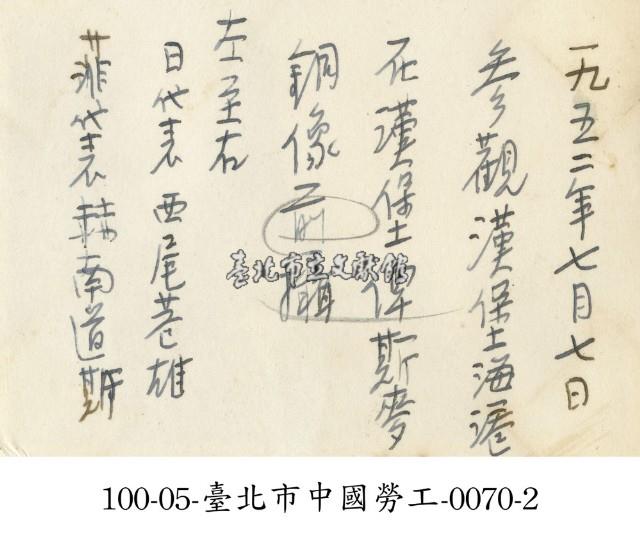 一九五二年七月七日
參觀漢堡海港
在漢堡俾斯麥
銅像前攝
左至右
日代表 西尾巷雄
菲代表 赫南道斯
臺北市立文獻館
100-05-臺北市中國勞工-0070-2